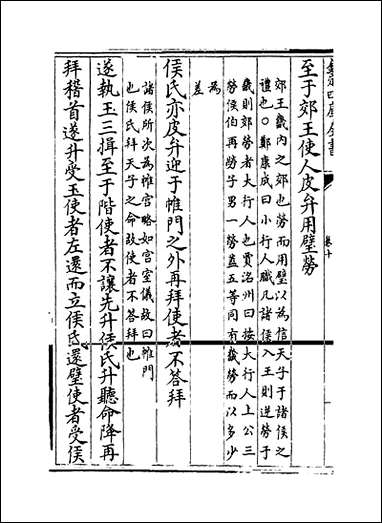 至于郊王使人皮弁用璧勞
郊王畿内之郊也勞而用璧以為信天子于諸侯之
禮也○鄭康成曰小行人職凡諸侯入王則逆勞于
畿則郊勞者大行人也賈洺州曰按大行人上公三
勞侯伯再勞子男一勞蓋五等同有畿勞而以多少
為
差
侯氏亦皮弁迎于帷門之外再拜使者不答拜
諸侯所次為帷宫略如宫室儀故曰帷門
也侯氏拜天子之命故使者不答拜也
遂執玉三揖至于階使者不讓先升侯氏升聽命降再
拜稽首遂升受玉使者左還而立侯氏還璧使者受侯